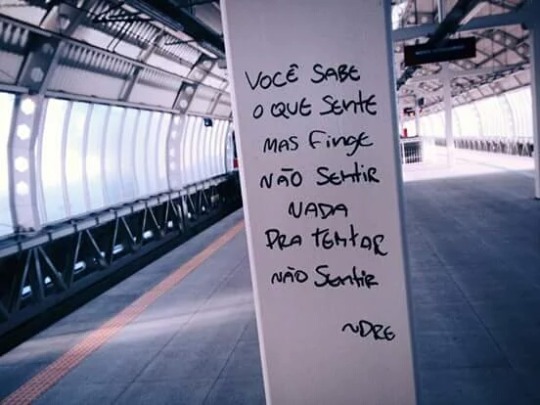 VOCÊ SABE
O QUE SENTE
MAS FINGE
NÃO SENTIR
NADA
PRA TENTAR
NÃO SENTIR
~DRE